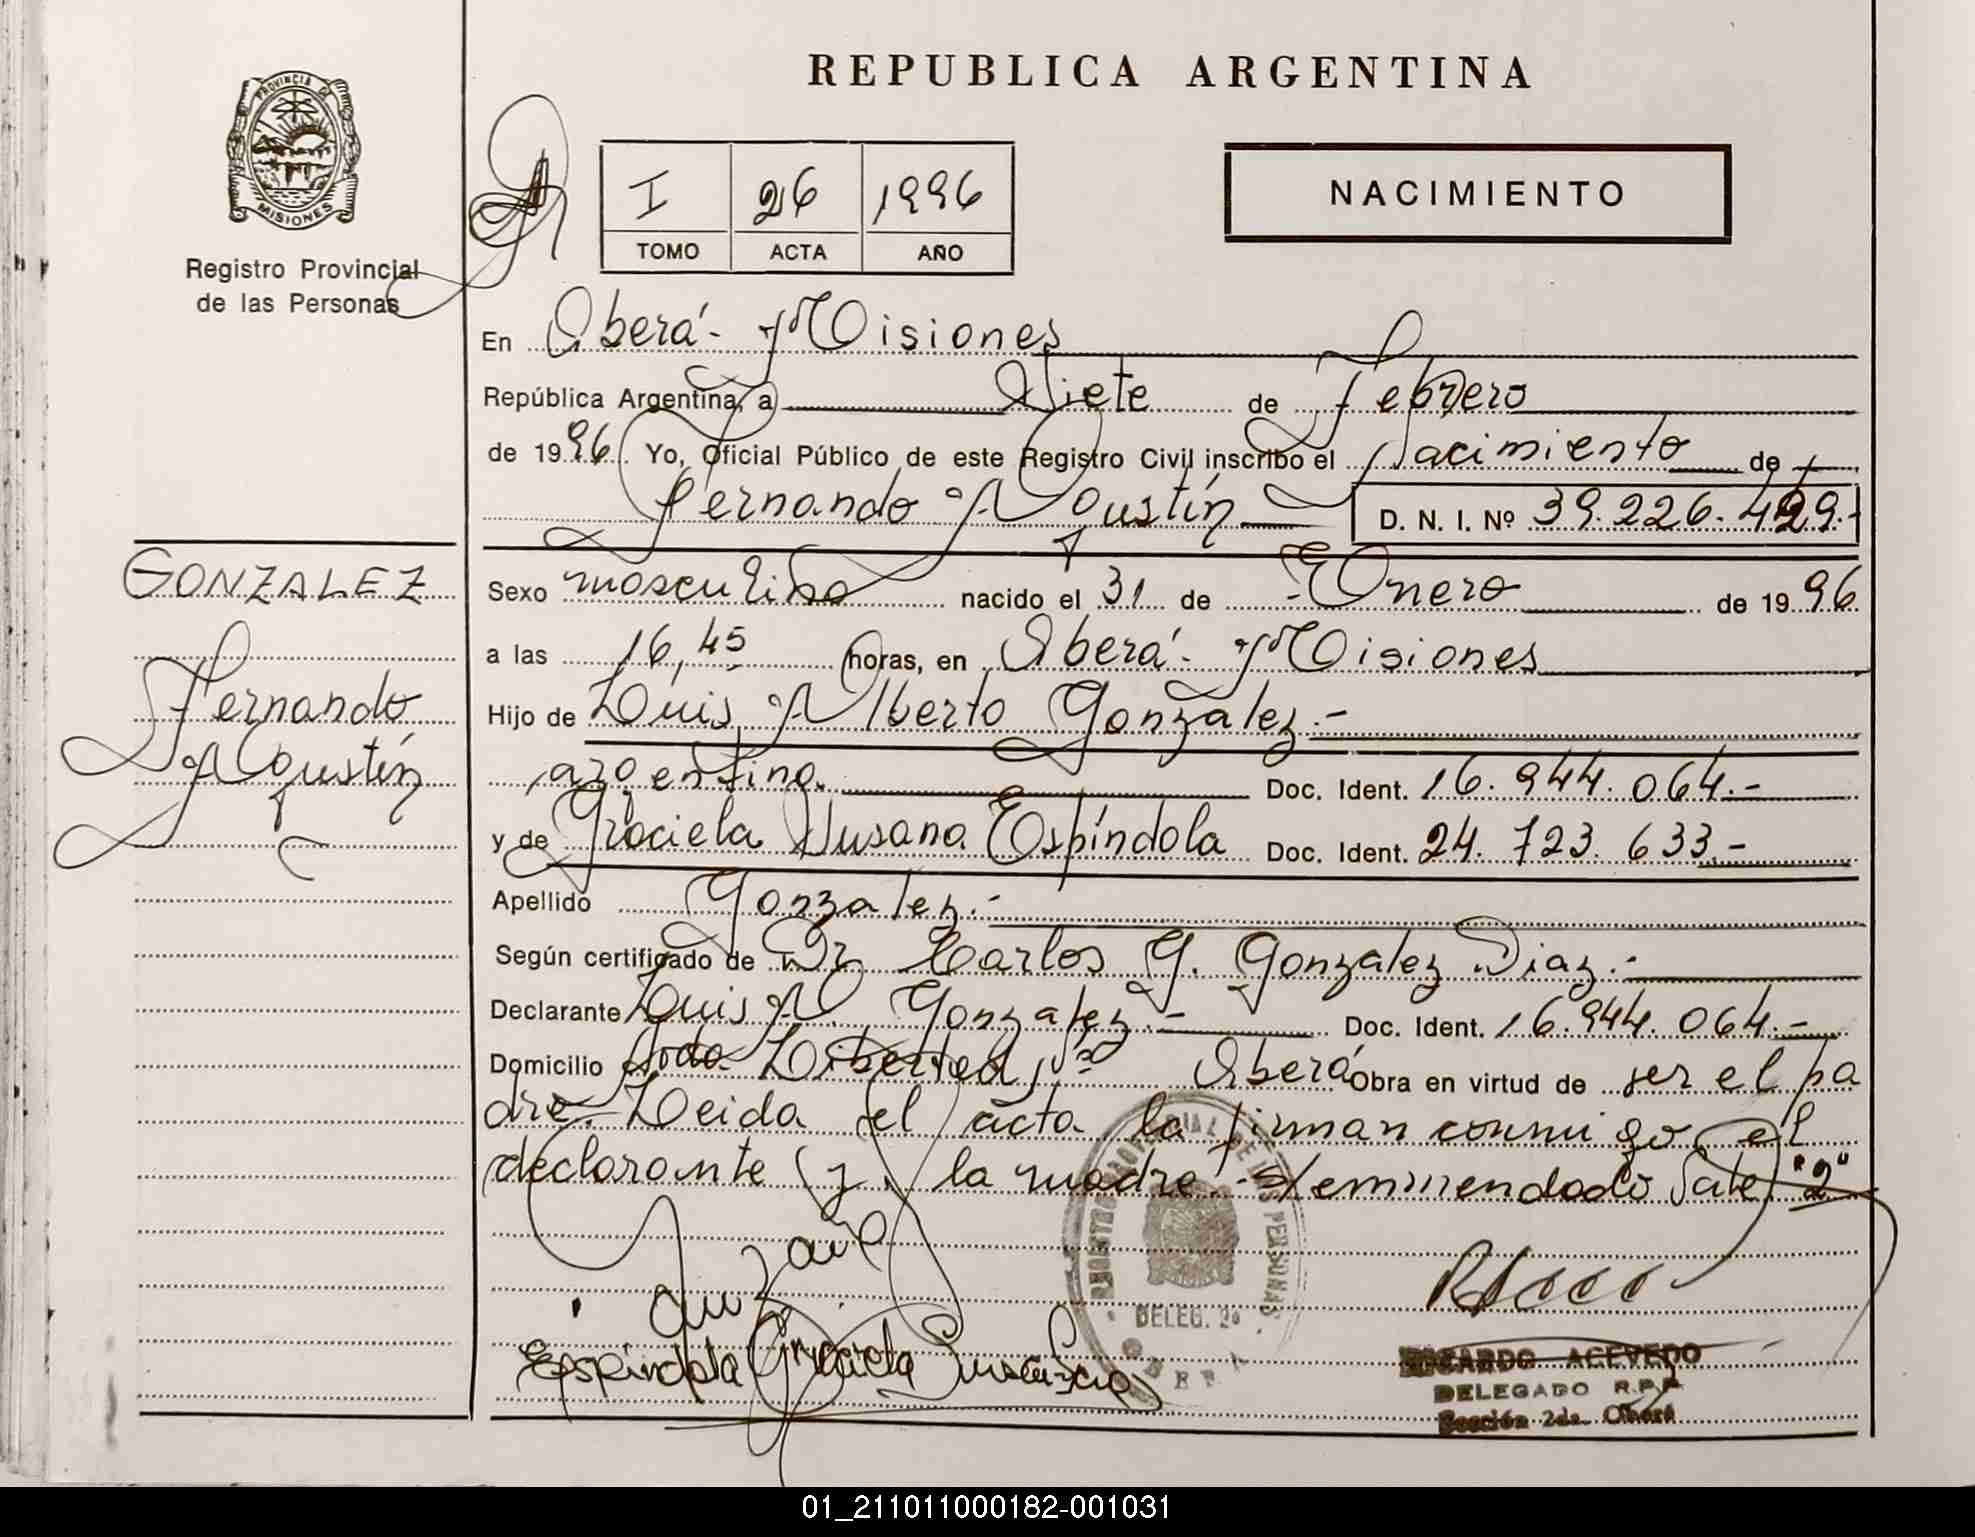 REPUBLICA ARGENTINA
PROVINCIA DE
MISIONES
Registro Provincial
de las Personas
I 26 1996
TOMO ACTA AÑO
NACIMIENTO
En Oberá - Misiones
República Argentina, a Siete de Febrero
de 1996 Yo, Oficial Público de este Registro Civil inscribo el Nacimiento de
Fernando Agustín D. N. I. Nº 39.226.429.-
GONZALEZ
Fernando
Agustín
Sexo masculino nacido el 31 de Enero de 1996
a las 16,45 horas, en Oberá - Misiones
Hijo de Luis Alberto Gonzalez.-
argentino. Doc. Ident. 16.944.064.-
y de Graciela Susana Espíndola Doc. Ident. 24.723.633.-
Apellido Gonzalez.-
Según certificado de Dr Carlos G. Gonzalez Diaz.-
Declarante Luis A. Gonzalez.- Doc. Ident. 16.944.064.-
Domicilio Libertad Oberá Obra en virtud de ser el pa
dre. Leida el acta la firman conmigo el
declarante y la madre.- enmendado Vale "2"
Espindola Graciela Susana
DELEG. 2a
RICARDO ACEVEDO
DELEGADO R.P.P.
Sección 2da. Oberá
01_211011000182-001031